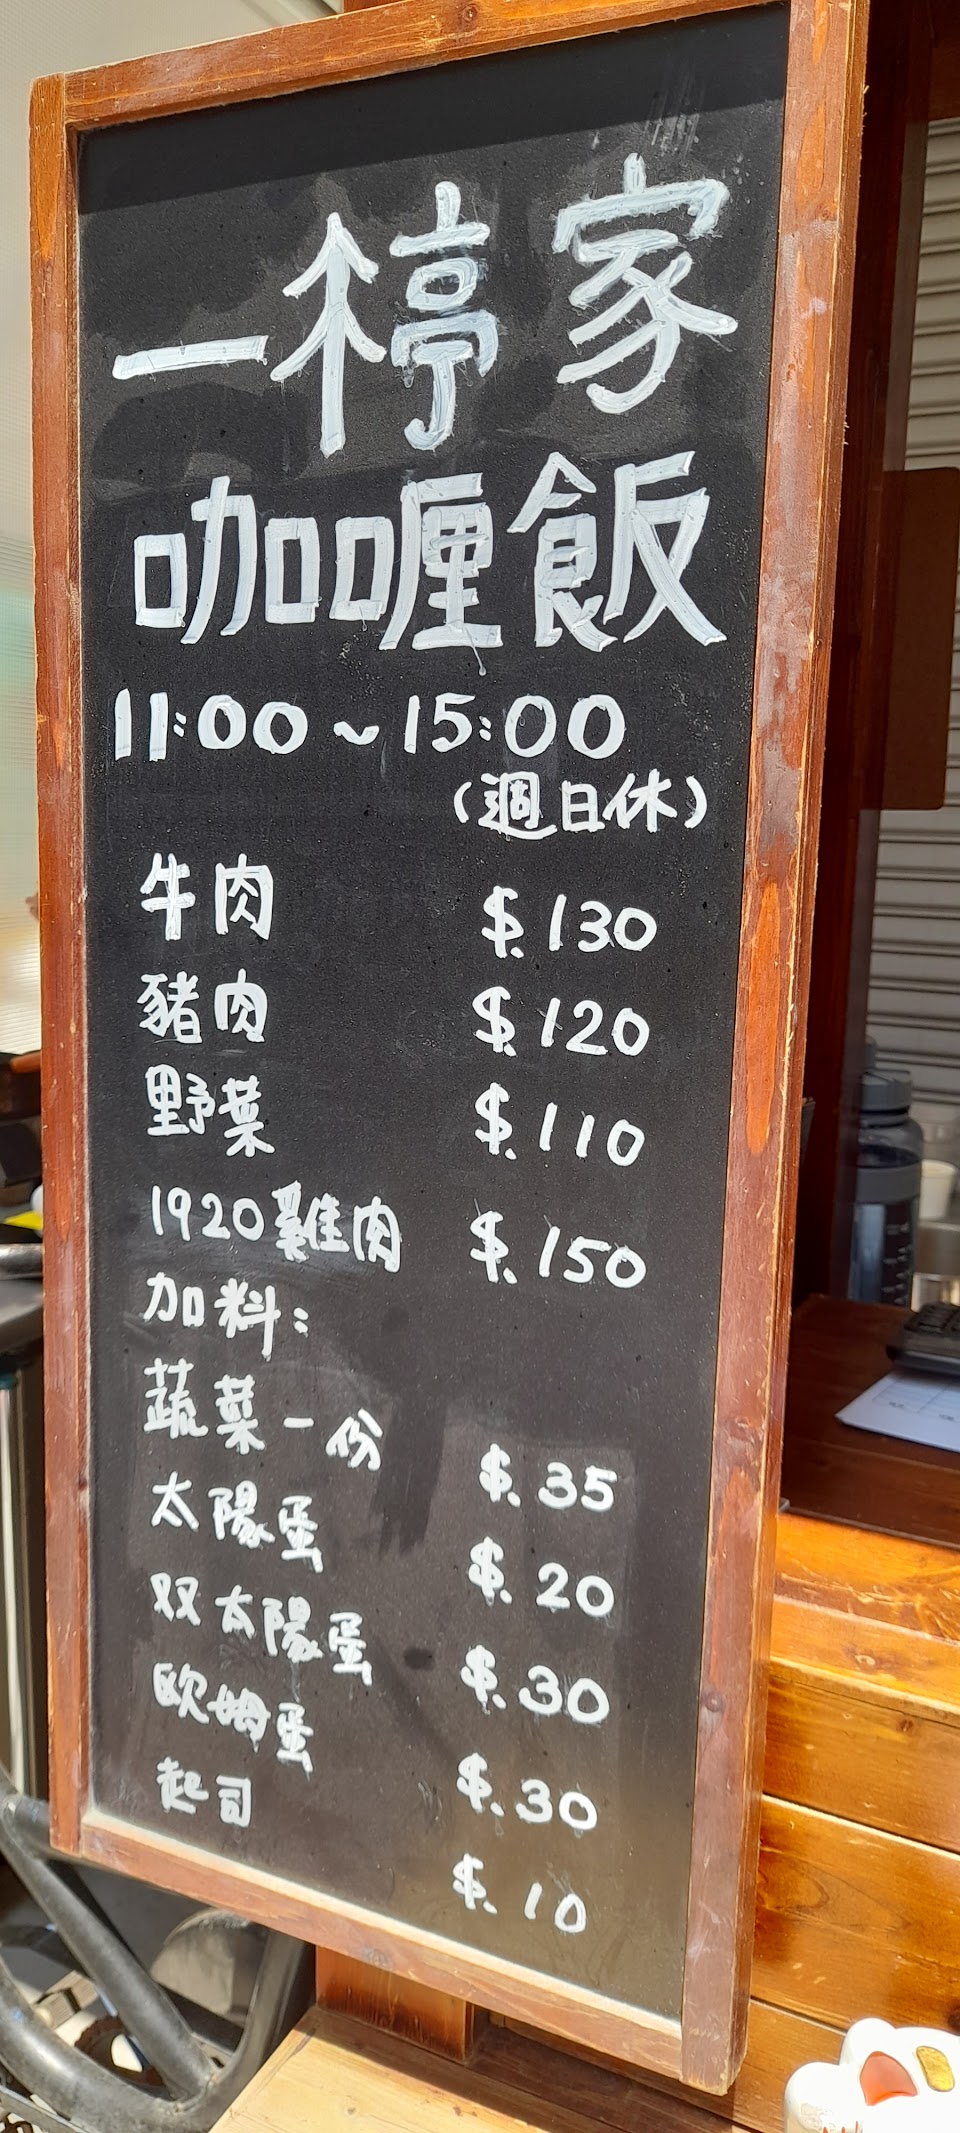 一楟家
咖喱飯
11:00～15:00
(週日休)
牛肉 $.130
豬肉 $.120
野菜 $.110
1920雞肉 $.150
加料:
蔬菜一份 $.35
太陽蛋 $.20
双太陽蛋 $.30
欧姆蛋 $.30
起司 $.10